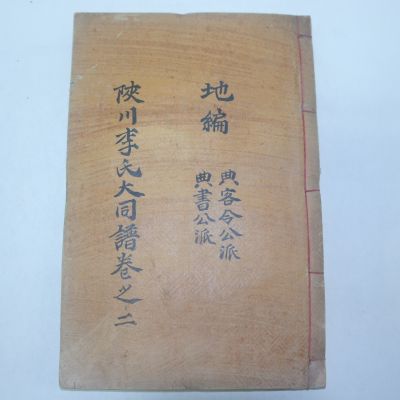 地編
典客令公派
典書公派
陜川李氏大同譜卷之二